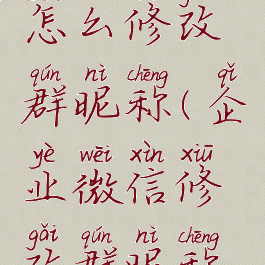 怎么修改
qún nì chēng ( qǐ
群昵称(企
yè wēi xìn xiū
业微信修
gǎi qún nì chēng
改群昵称